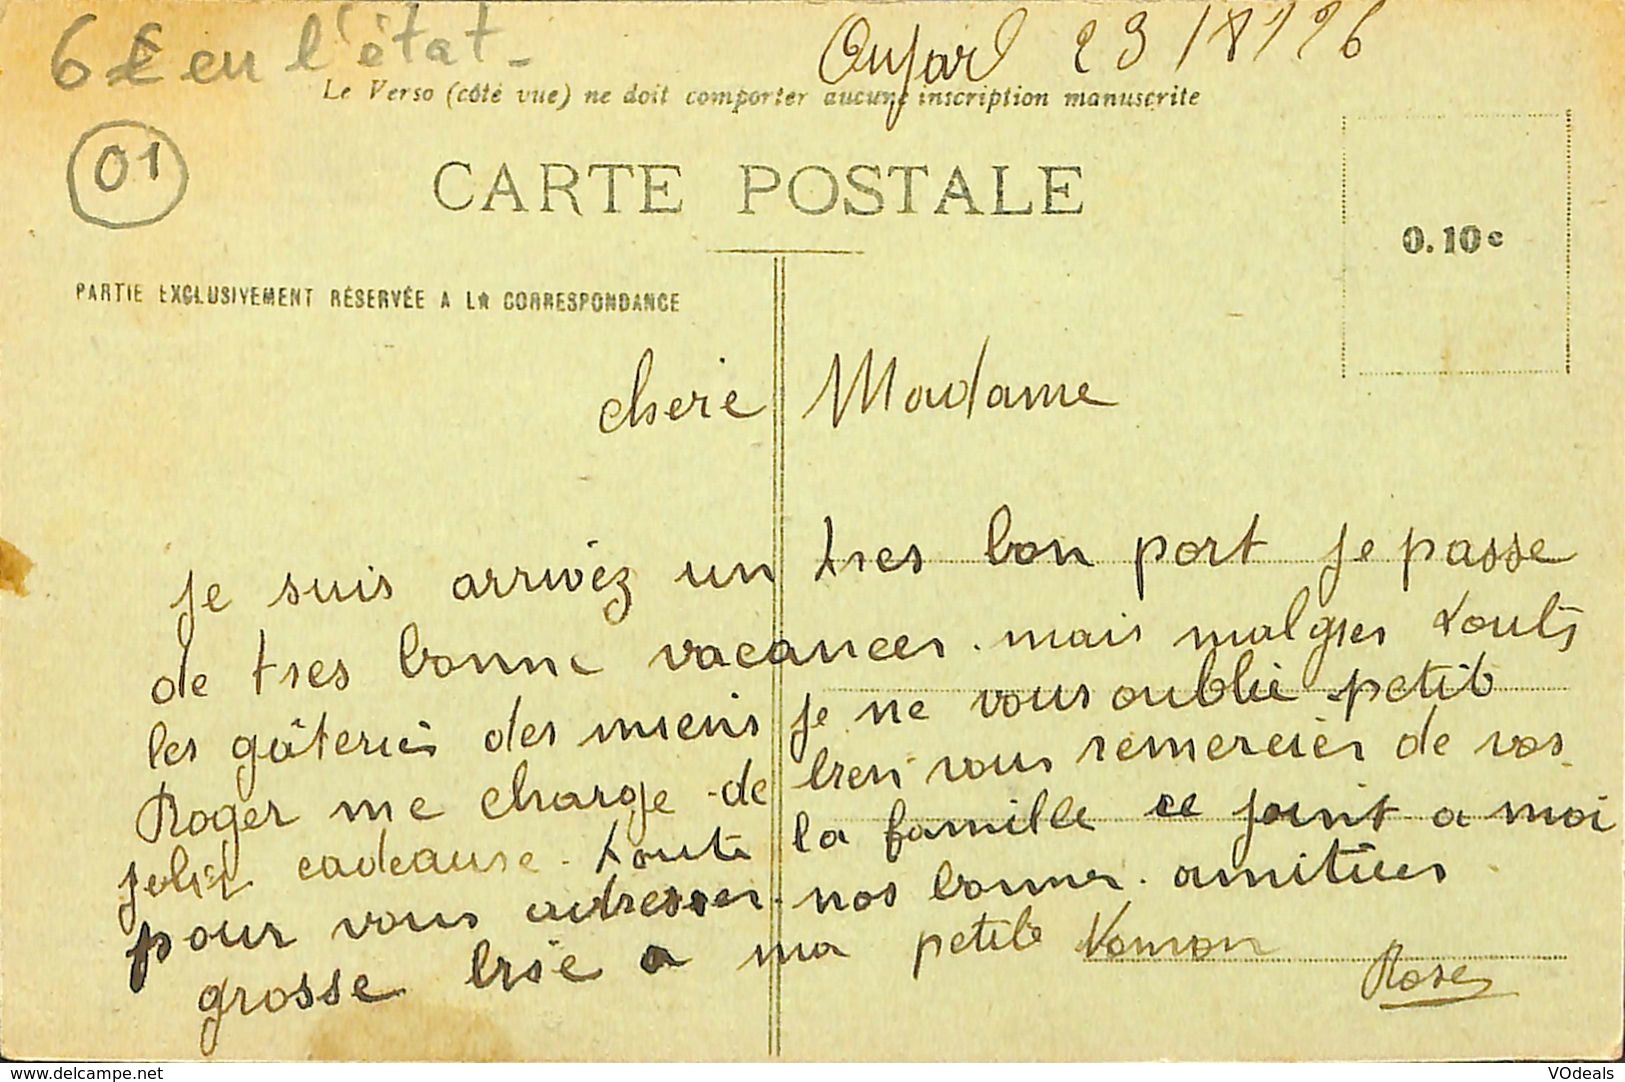 6€ en l'état -
23/8/26
Le Verso (côté vue) ne doit comporter aucune inscription manuscrite
01
CARTE POSTALE
0.10c
PARTIE EXCLUSIVEMENT RÉSERVÉE A LA CORRESPONDANCE
cherie Madame
je suis arrivéz un tres bon port je passe
de tres bonne vacances. mais malgres touts
les gâteries des miens je ne vous oublie petit
Roger me charge de bien vous remercier de vos
jolis cadeause. toute la famille ce joint a moi
pour vous adresser nos bonnes amitiées
grosse bise a ma petite
Rose
www.delcampe.net
VOdeals